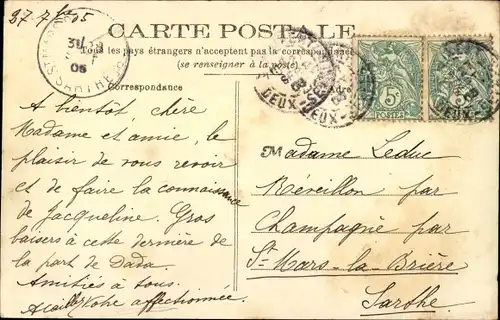 37 7bre 05
CARTE POSTALE
Tous les pays étrangers n'acceptent pas la correspondance
(se renseigner à la poste)
Correspondance
SARTHE
05
DEUX-
DEUX-
5c
POSTES
A bientôt, chère
Madame et amie, le
plaisir de vous revoir
et de faire la connaissance
de Jacqueline. Gros
baisers à cette dernière de
la part de Dada.
Amitiés à tous.
affectionnée.
Madame Leduc
Réveillon par
Champagné par
St Mars-la-Brière
Sarthe